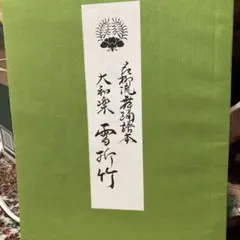 花柳流舞踊譜本
大和楽 雪折竹